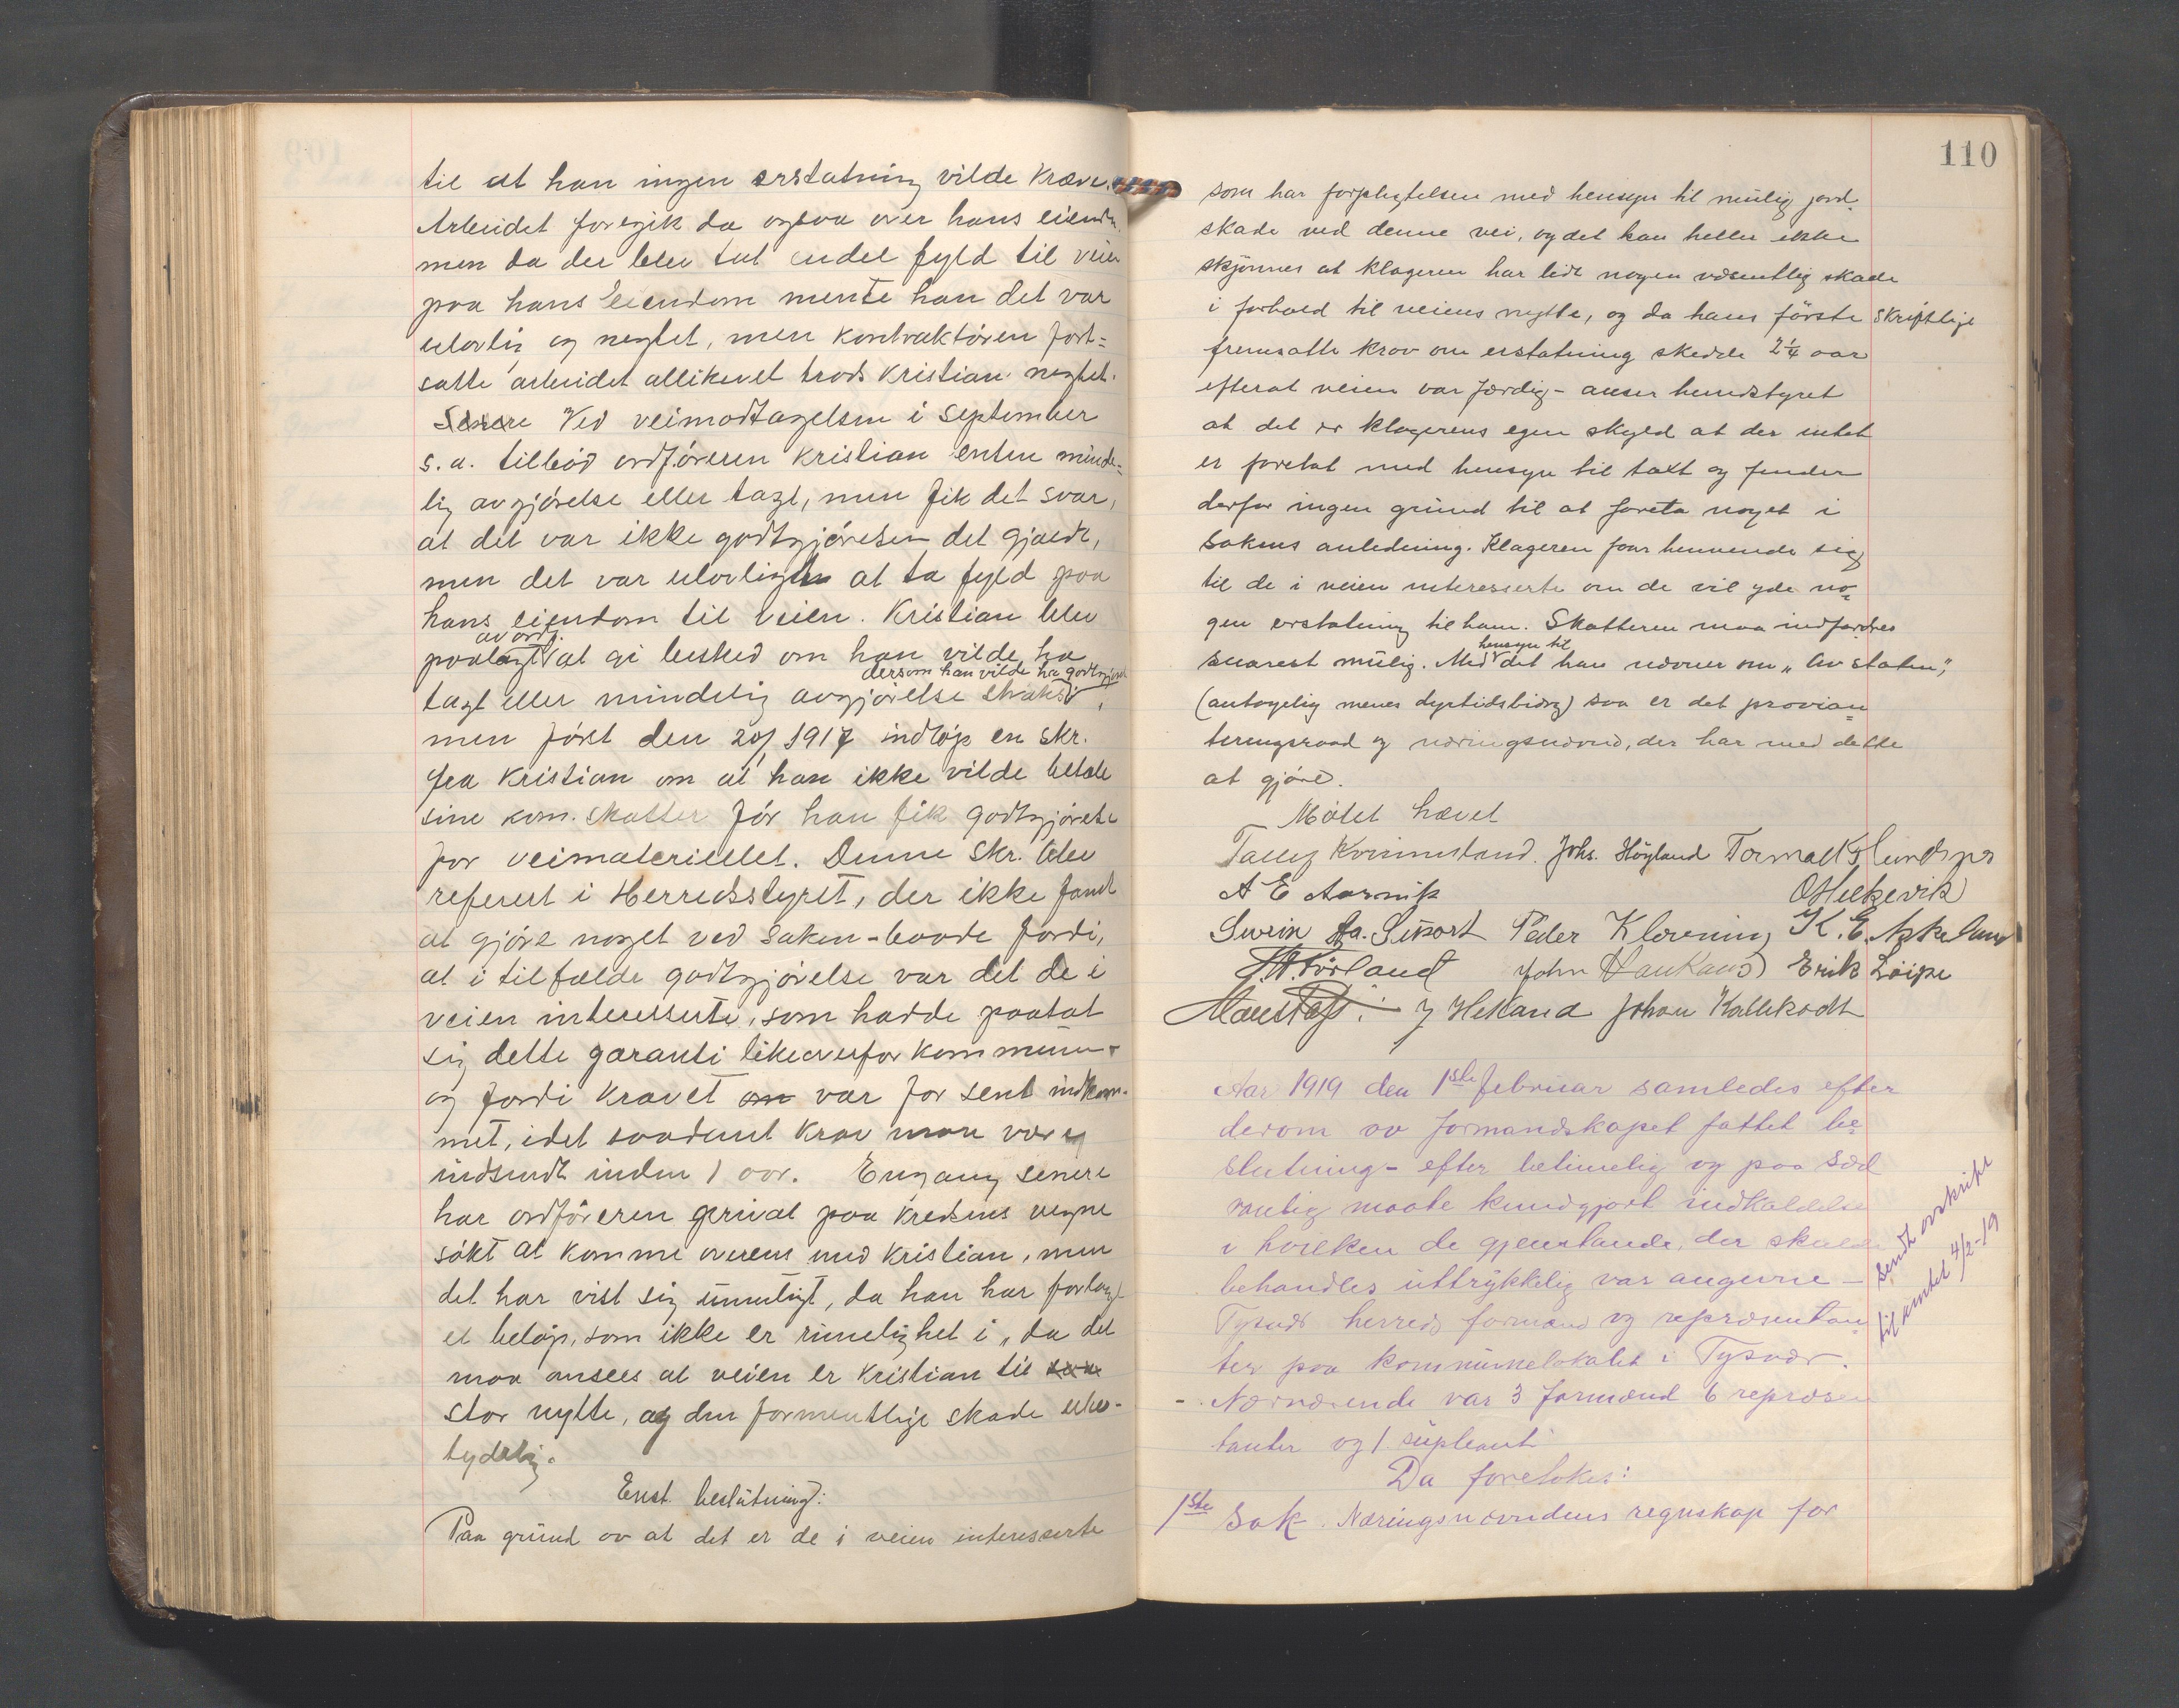 til at han ingen erstatning vilde kræve.
Arbeidet foregik da ogsaa over hans eiendm.
men da der blev tat endel fyld til veien
paa hans eiendom mente han det var
ulovlig og negtet, men kontraktøren fort=
satte arbeidet allikevel trods Kristian negtet.
Senere Ved veimodtagelsen i September
s.a. tilbød ordføreren Kristian enten minde=
lig avgjørelse eller taxt, men fik det svar,
at det var ikke godtgjørelsen det gjaldt,
men det var ulovlig at ta fyld paa
hans eiendom til veien. Kristian blev
av ordf.
paalagt at gi besked om han vilde ha
dersom han vilde ha godtgjørelse
taxt eller mindelig avgjørelse straks,
men først den 20/ 1917 indløp en skr.
fra Kristian om at han ikke vilde betale
sine kom. skatter før han fik godtgjørelse
for veimateriellet. Denne skr. blev
referert i Herredsstyret, der ikke fandt
at gjøre noget ved saken - baade fordi,
at i tilfælde godtgjørelse var det de i
veien interesserte, som hadde paatat
sig dette garanti likeoverfor kommunen
og fordi kravet om var for sent indkom-
met, idet saadant krav maa være
indsendt inden 1 aar. Engang senere
har ordføreren privat paa kredsens vegne
søkt at komme overens med Kristian, men
det har vist sig umuligt, da han har forlangt
et beløp, som ikke er rimelighet i, da det
maa ansees at veien er Kristian til
stor nytte, og den formentlige skade ube-
tydelig.
Enst. beslutning:
Paa grund av at det er de i veien interesserte
110
som har forpligtelsen med hensyn til mulig jord-
skade ved denne vei, og det kan heller ikke
skjønnes at klageren har lidt nogen væsentlig skade
i forhold til veiens nytte, og da hans første skriftlige
fremsatte krav om erstatning skedde 2¼ aar
efterat veien var færdig - anser herredstyret
at det er klagerens egen skyld at der intet
er foretat med hensyn til taxt og finder
derfor ingen grund til at foreta noget i
sakens anledning. Klageren faar henvende sig
til de i veien interesserte om de vil yde no=
gen erstatning til ham. Skatteren maa indfordres
hensyn til
snarest mulig. Med det han nævner om "av staten",
(antagelig menes dyrtidsbidrag) saa er det provian=
teringsraad og næringsnævnd, der har med dette
at gjøre.
Møtet hævet
Kvinnesland. Johs. Høyland Tormod
A E Aarvik O Helkevik
Sivert Peder Kløvning K. E. Askeland
Førland John Erik Løipe
J Hetland Johan Kallekodt
Aar 1919 den 1ste februar samledes efter
derom av formandskapet fattet be=
slutning - efter betimelig og paa sæd
vanlig maate kundgjort indkaldelse
i hvilken de gjenstande, der skulde
behandles uttrykkelig var angivne -
Tysvær herreds formænd og repræsentan
ter paa kommunelokalet i Tysvær.
- Nærværende var 3 formænd 6 repræsen
tanter og 1 supleant
Da foretokes:
1ste Sak. Næringsnævndens regnskap for
Sendt avskrift
til amtet 4/2-19